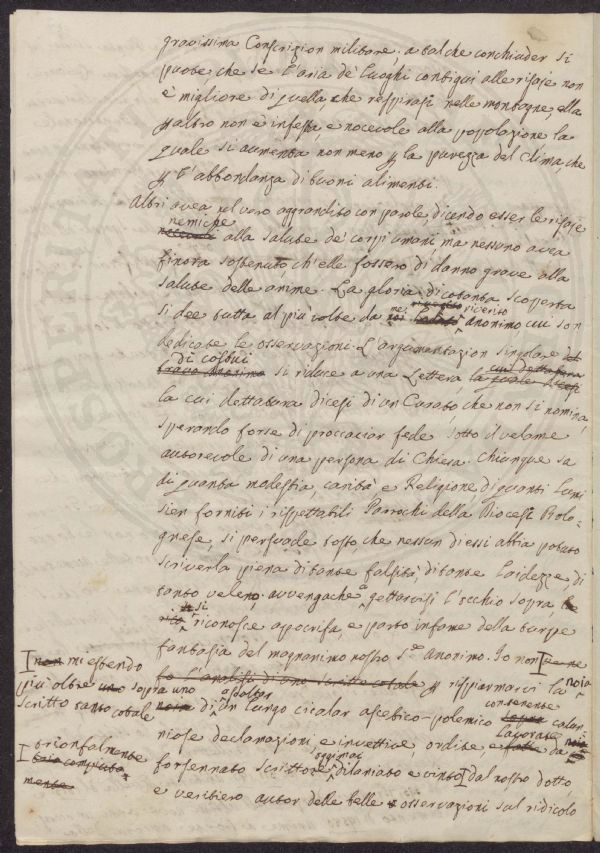 gravissima Conscrizion militare. a tal che conchiuder si
puote che se l'aria de' luoghi contigui alle risaje non
è migliore di quella che respirasi nelle montagne, ella
p altro non è infesta, e nocevole alla popolazione la
quale si aumenta non meno p la purezza del clima, che
p l'abbondanza di buoni alimenti.
Altri avea pel vero aggrandito con parole, dicendo esser le risaje
nemiche
nocevoli alla salute de' corpi umani ma nessuno avea
finora sostenuto, ch'elle fossero di danno grave alla
salute delle anime. La gloria di cotanta scoperta
si dee tutta al più volte da me riverito anonimo cui son
dedicate le osservazioni. L'argumentazion singolare
di costui
bravo Anonimo si riduce a una Lettera la quale dicesi
la cui dettatura dicesi di un Curato, che non si nomina,
sperando forse di procacciar fede sotto il velame
autorevole di una persona di Chiesa. Chiunque sa
di quanta modestia, carità, e Religione, di quanti lumi
sien forniti i rispettabili Parrochi della Diocesi Bolo-
gnese, si persuade tosto, che nessun di essi abbia potuto
scriverla piena di tante falsità, di tante laidezze, di
tanto veleno. avvengachè a gettarvisi l'occhio sopra,
si riconosce apocrifa, e parto infame della turpe
fantasia del magnanimo nostro S.r Anonimo. Io non
fo analisi di uno scritto cotale p risparmarci la noia
ascoltar
di un lungo cicalar ascetico-polemico contenente calun-
niose declamazioni, e invettive, ordite, e lavorate da
forsennato scrittore omai dilaniato e vinto dal nostro dotto,
e veritiero autor delle belle osservazioni sul ridicolo
non mi estendo
più oltre uno sopra uno
scritto tanto cotale
trionfalmente